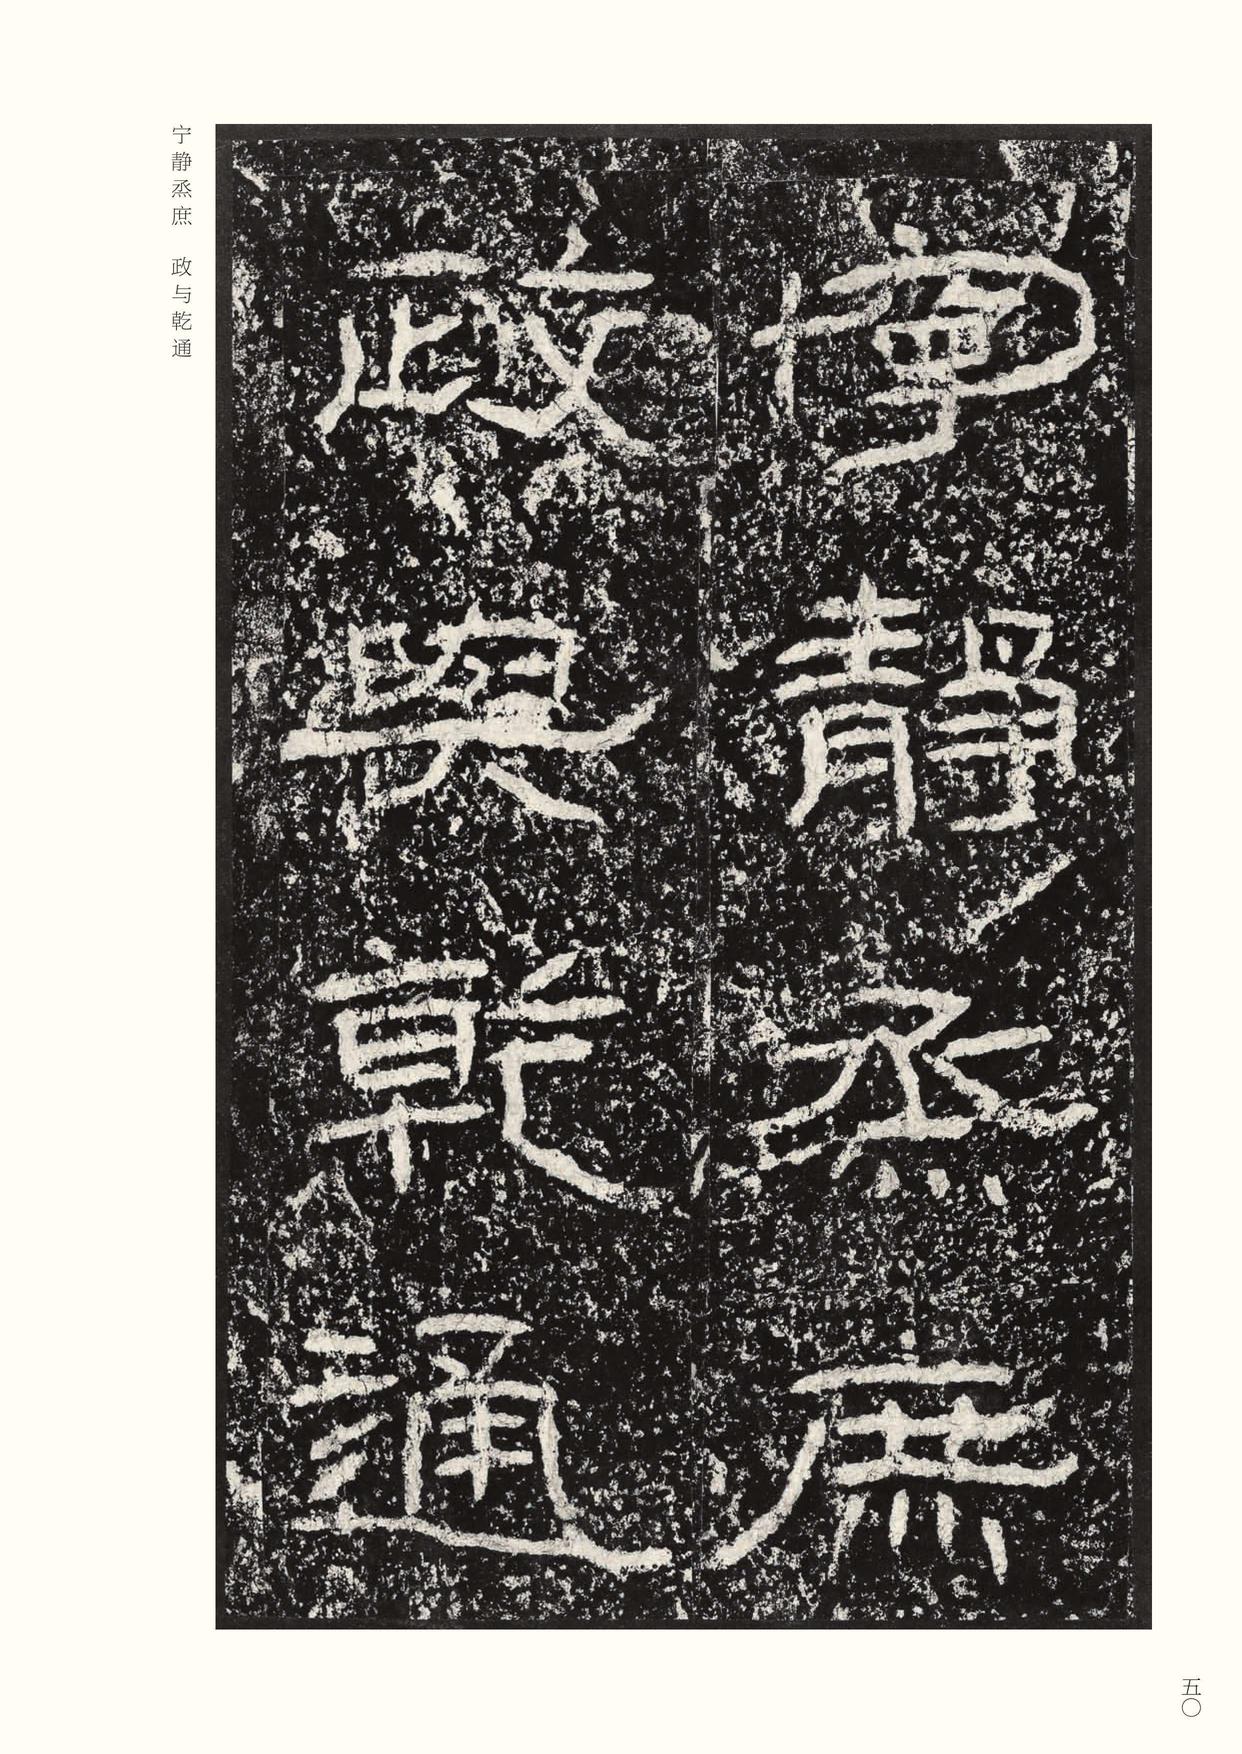 寧靜烝庶
政與乾通
宁静烝庶　政与乾通
五〇